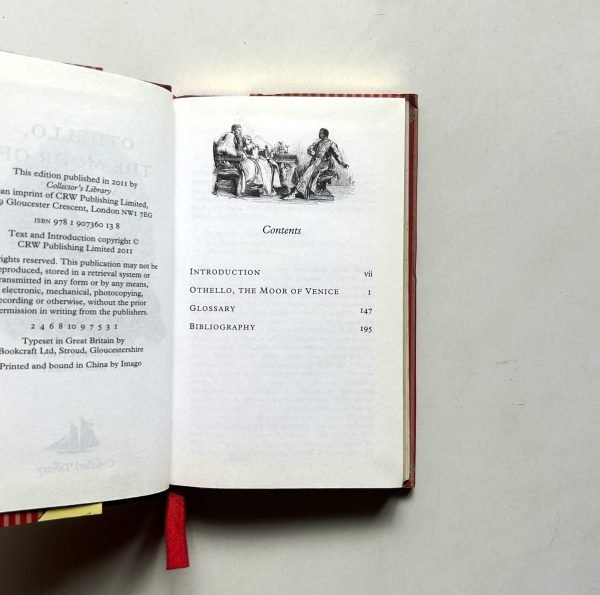 This edition published in 2011 by
Collector's Library
an imprint of CRW Publishing Limited,
9 Gloucester Crescent, London NW1 7EG
ISBN 978 1 907360 13 8
Text and Introduction copyright ©
CRW Publishing Limited 2011
rights reserved. This publication may not be
reproduced, stored in a retrieval system or
transmitted in any form or by any means,
electronic, mechanical, photocopying,
recording or otherwise, without the prior
permission in writing from the publishers.
2 4 6 8 10 9 7 5 3 1
Typeset in Great Britain by
Bookcraft Ltd, Stroud, Gloucestershire
Printed and bound in China by Imago
Contents
INTRODUCTION vii
OTHELLO, THE MOOR OF VENICE 1
GLOSSARY 147
BIBLIOGRAPHY 195